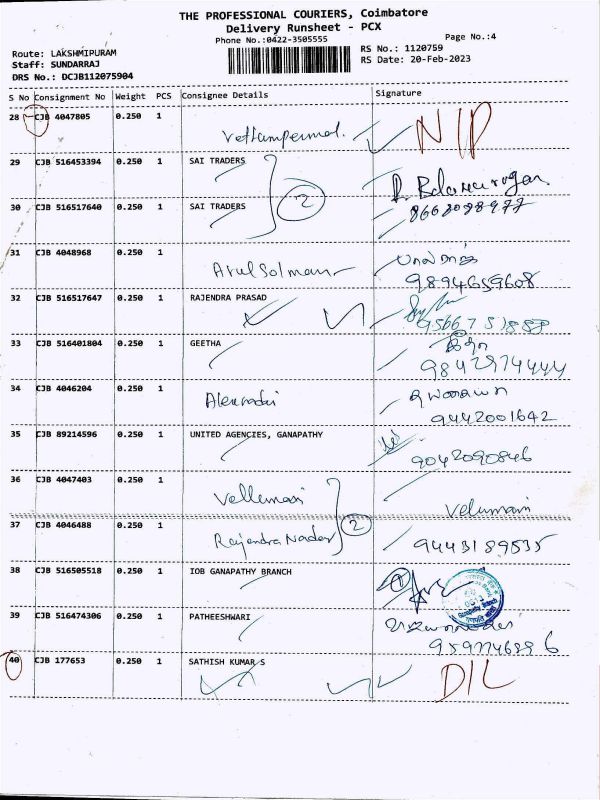 THE PROFESSIONAL COURIERS, Coimbatore
Delivery Runsheet - PCX
Phone No.:0422-3505555
Page No.:4
Route: LAKSHMIPURAM
Staff: SUNDARRAJ
DRS No.: DCJB112075904
RS No.: 1120759
RS Date: 20-Feb-2023
S No Consignment No Weight PCS Consignee Details Signature
28 CJB 4047805 0.250 1 NIP
29 CJB 516453394 0.250 1 SAI TRADERS
2
30 CJB 516517640 0.250 1 SAI TRADERS
31 CJB 4048968 0.250 1
9894659608
32 CJB 516517647 0.250 1 RAJENDRA PRASAD
33 CJB 516401804 0.250 1 GEETHA
9842974444
34 CJB 4046204 0.250 1
9442001642
35 CJB 89214596 0.250 1 UNITED AGENCIES, GANAPATHY
9042090846
36 CJB 4047403 0.250 1 Vellumani Velumani
2
37 CJB 4046488 0.250 1 Rajendra Nadar 9443189535
38 CJB 516505518 0.250 1 IOB GANAPATHY BRANCH
39 CJB 516474306 0.250 1 PATHEESHWARI
40 CJB 177653 0.250 1 SATHISH KUMAR S DIL